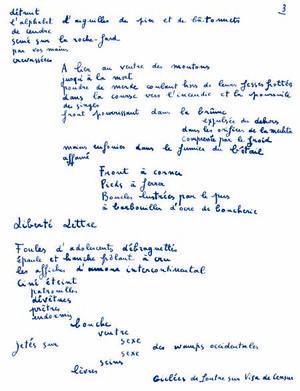 3
détruit
l'alphabet d'aiguilles de pin et de bâtonnets
de cendre
semé sur la roche-fard
par vos mains
crevassées
A lier au ventre des moutons
jusqu'à la mort
poudre de merde coulant hors de leurs fesses frottées
dans la course vers l'incendie et la poursuite
de singes
front pourrissant dans la brûme
expulsée du dehors
dans les orifices de la
comprimée par le froid
mains enfouies dans le fumier du bétail
affamé
Front à corner
Pieds à ferrer
Boucles illustrées par le pus
à barbouiller d'ocre de boucherie
Liberté Lettre
Foules d'adolescents débraguettés
épaule et hanche frôlant à cru
les affiches d'amour intercontinental
Ciné éteint
patrouilles
dévêtues
prêtres
endormis
bouche
ventre
jetés sur sexe des vamps occidentales
sexe
seins
lèvres
Giclées de foutre sur Visa de Censure